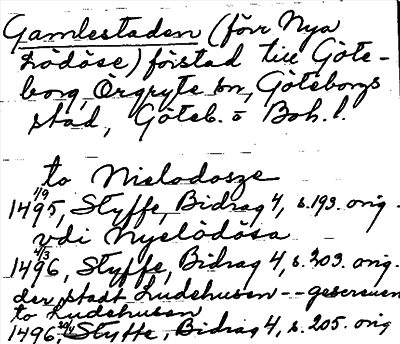 Gamlestaden (förr Nya
Lödöse) förstad till Göte-
borg, Örgryte sn, Göteborgs
stad, Göteb. o Boh. l.
to Nielodosze
1/9
1495, Styffe, Bidrag 4, s. 193. orig.
vdi Nyelödösa
4/3
1496, Styffe, Bidrag 4, s. 203. orig.
der stadt Ludehusen -- gescreuen
to Ludehusen
1496, Styffe, Bidrag 4, s. 205. orig